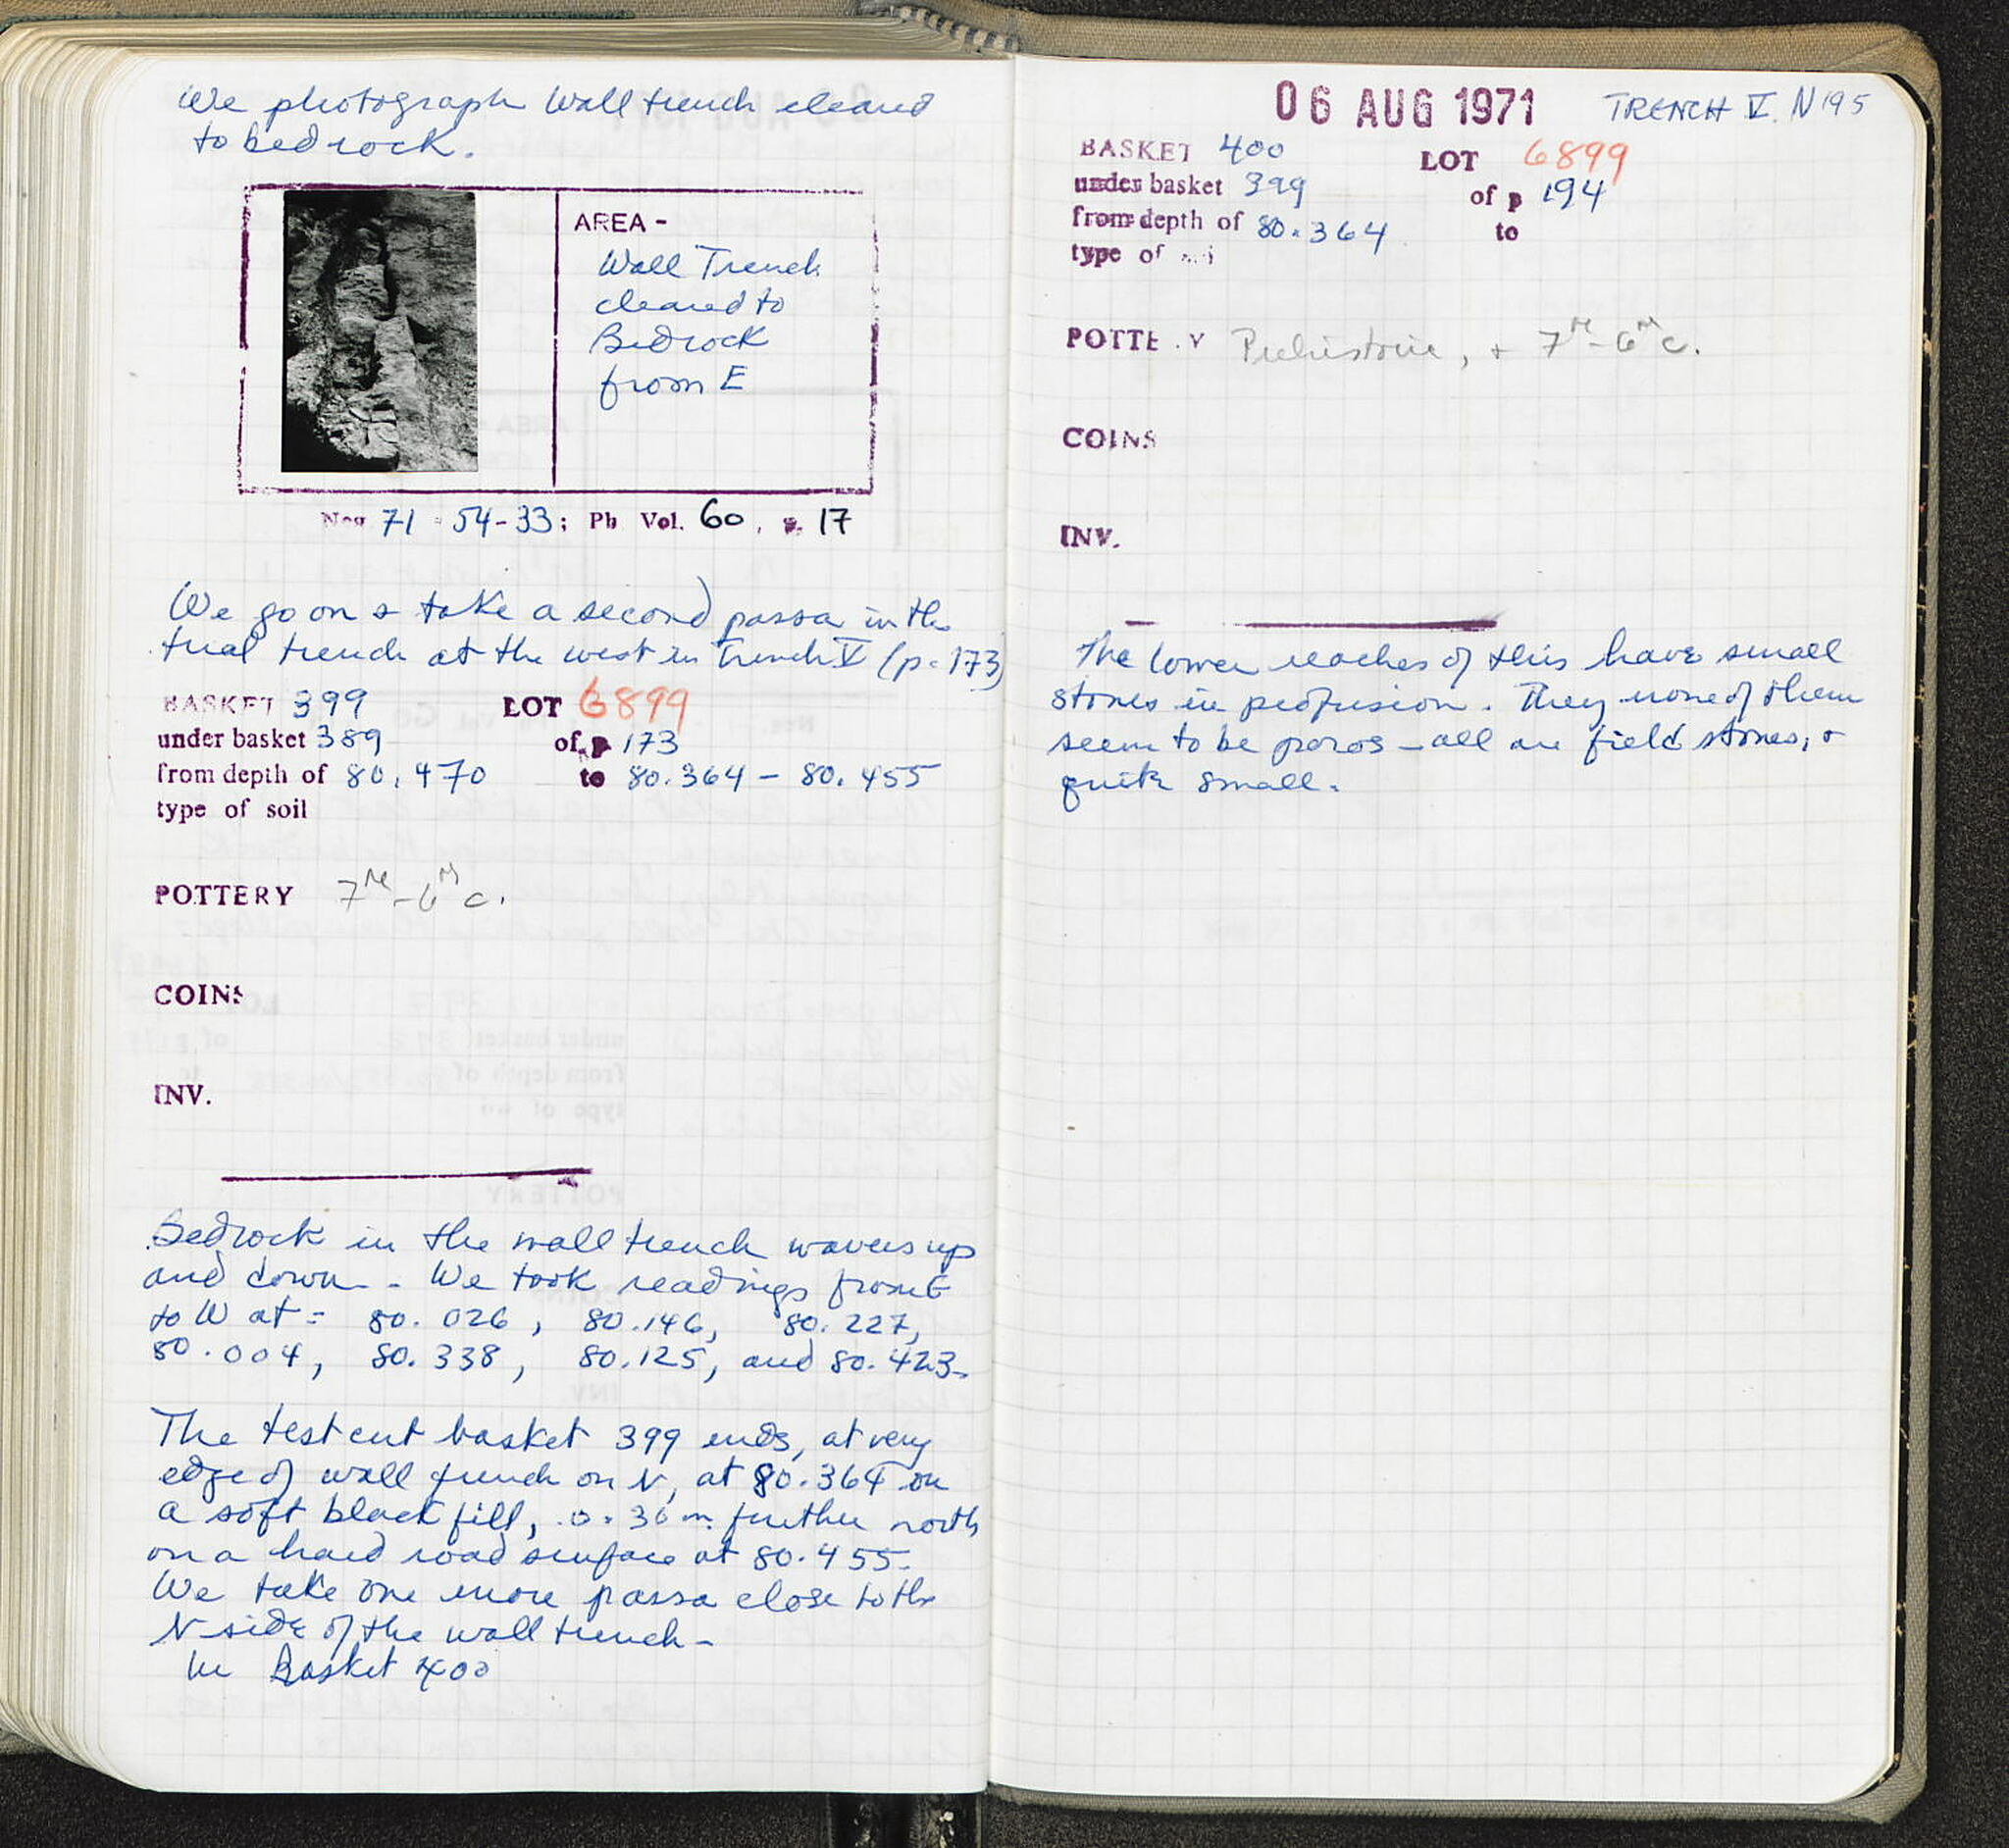 We photograph Wall trench cleared
to bedrock.
AREA -
Wall Trench
cleared to
Bedrock
from E
Neg 71-54-33; Ph Vol. 60, p. 17
We go on & take a second passa in the
trial trench at the west in Trench V (p. 173)
BASKET 399 LOT 6899
under basket 389 of p 173
from depth of 80.470 to 80.364 - 80.455
type of soil
POTTERY 7th-6th c.
COINS
INV.
Bedrock in the wall trench wavers up
and down. We took readings from E
to W at = 80.026, 80.146, 80.227,
80.004, 80.338, 80.125, and 80.423.
The test cut basket 399 ends, at very
edge of wall trench on N, at 80.364 on
a soft black fill, 0.30 m. further north
on a hard road surface at 80.455.
We take one more passa close to the
N side of the wall trench -
in Basket 400
06 AUG 1971 TRENCH V. N 195
BASKET 400 LOT 6899
under basket 399 of p 194
from depth of 80.364 to
type of
POTTERY Prehistoric, + 7th-6th c.
COINS
INV.
The lower reaches of this have small
stones in profusion. They none of them
seem to be poros - all are field stones, &
quite small.